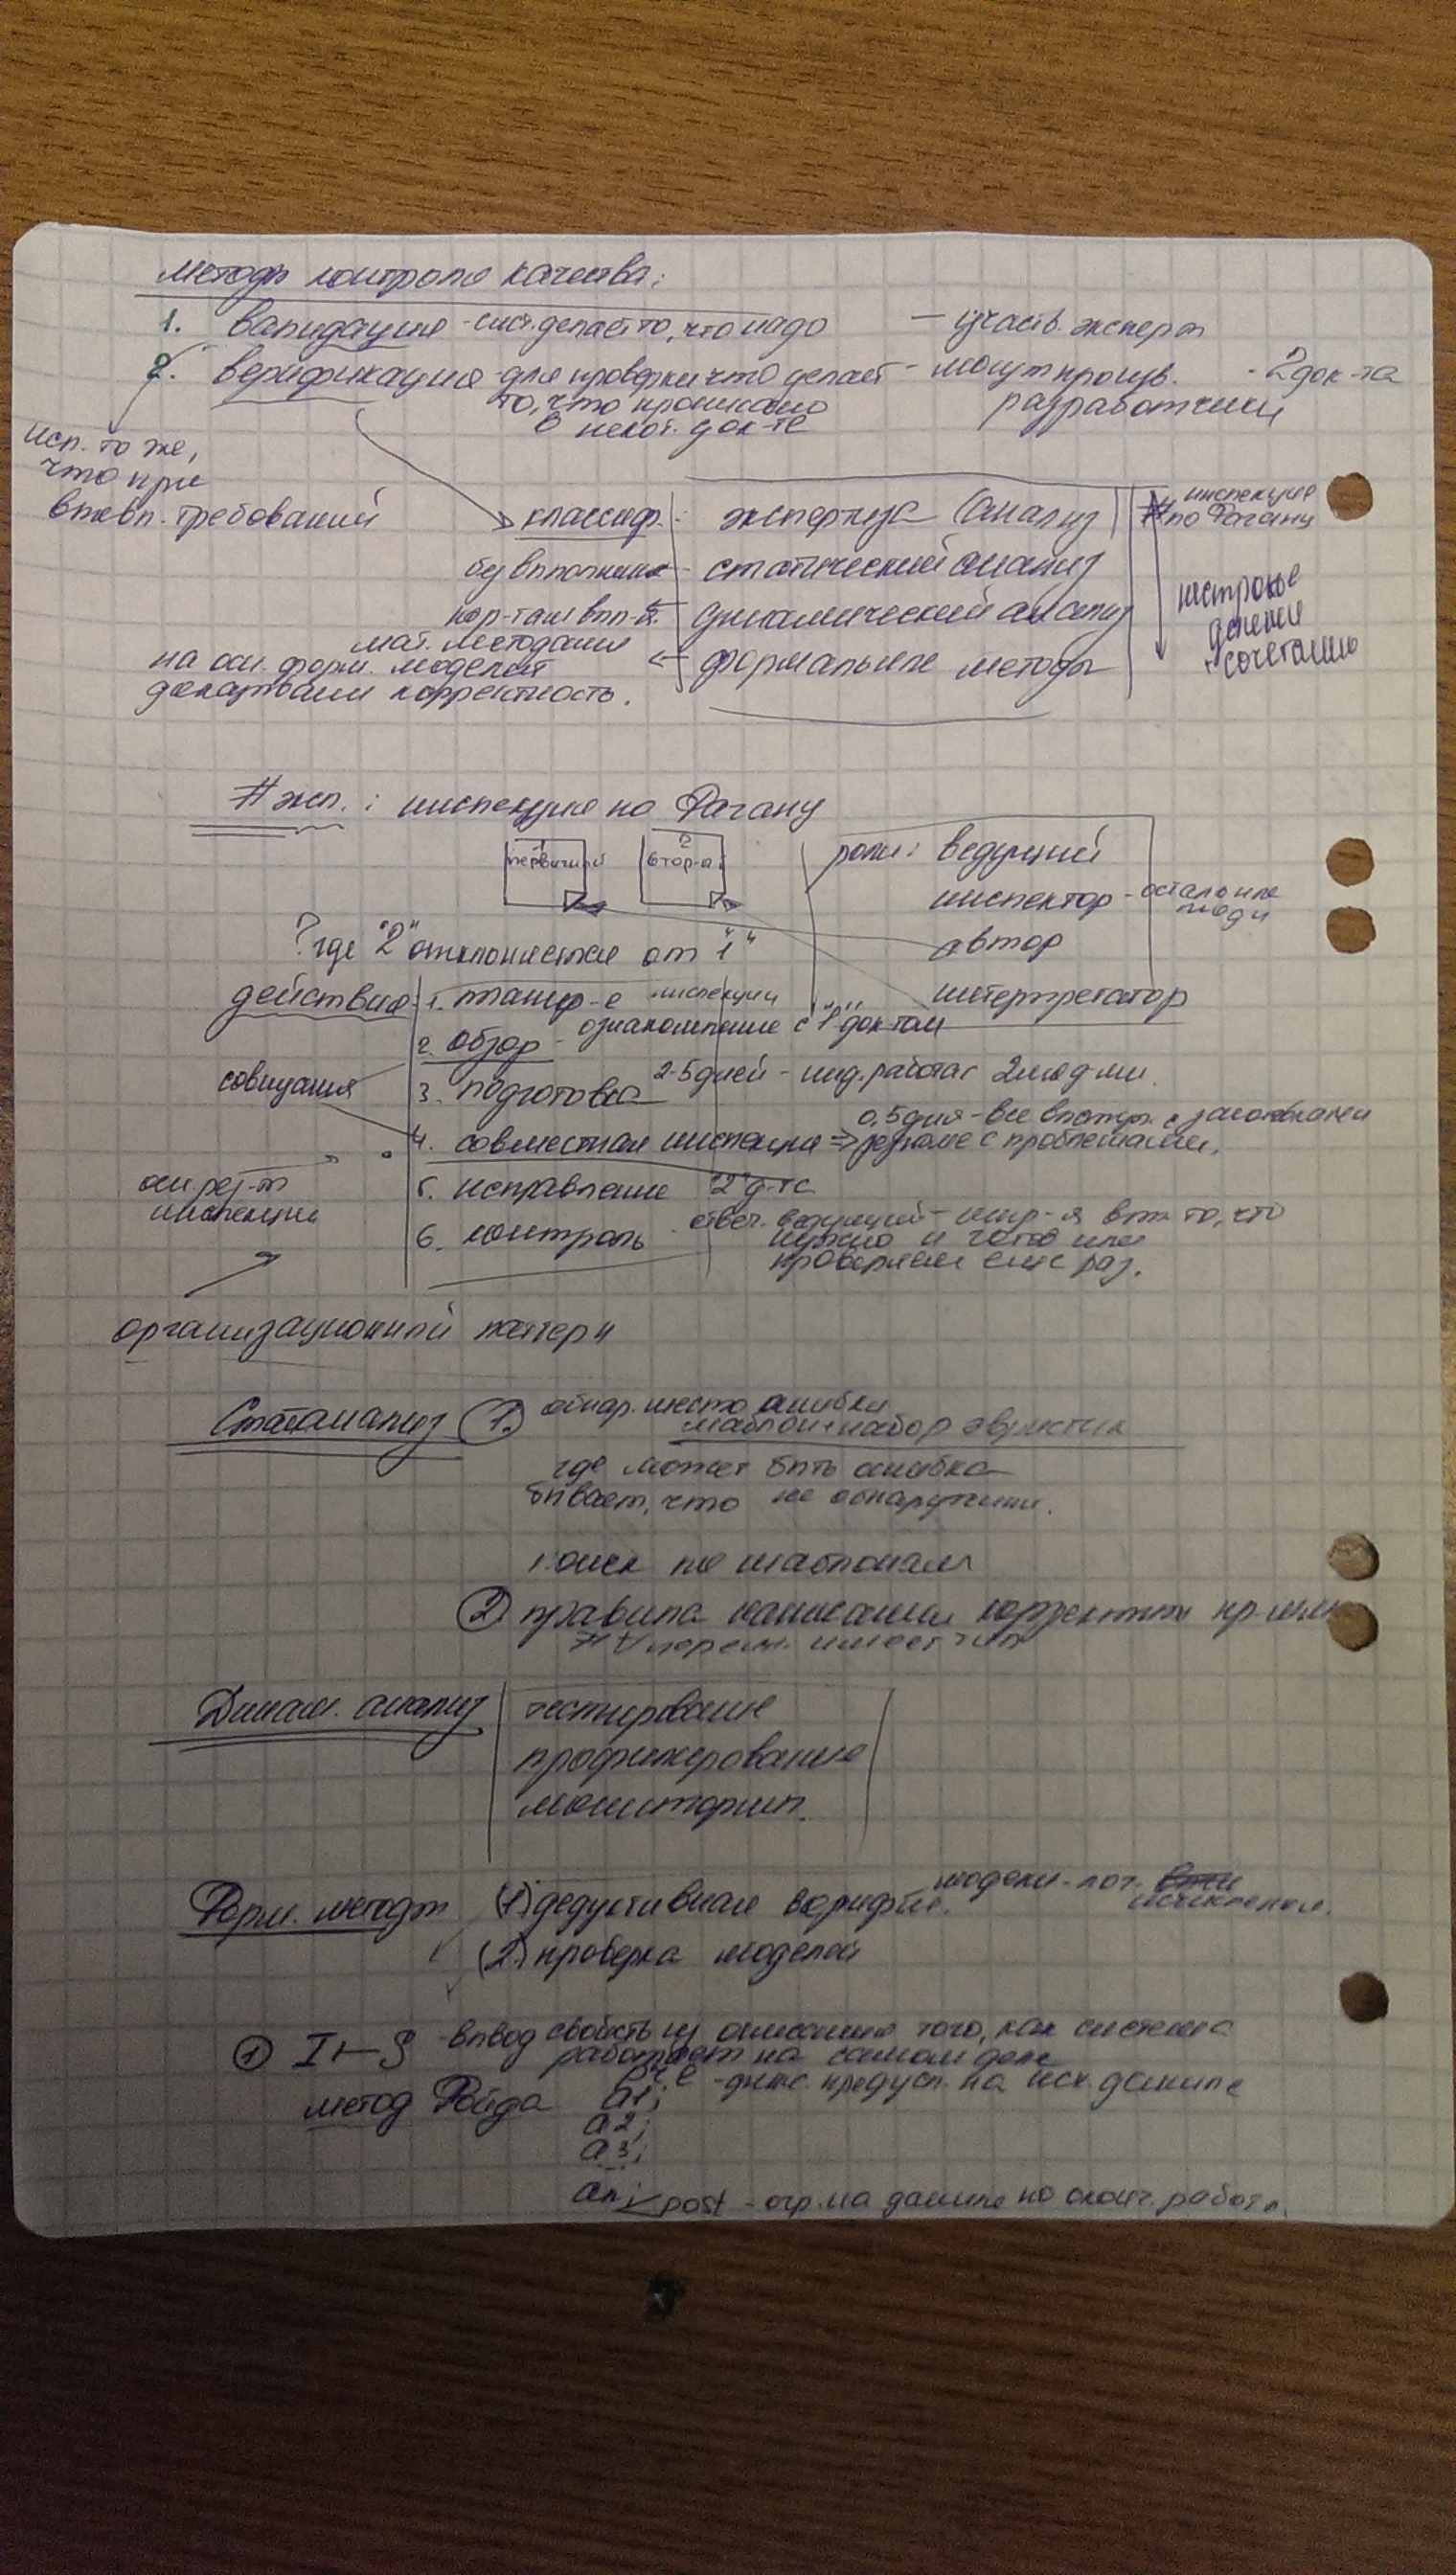 методы контроля качества:
1. валидация - сист. делает то, что надо — участв. эксперты
2. верификация - для проверки что делает - могут произв. - 2 док-та
то, что прописано разработчики
в некот. док-те
исп. то же,
что при
выявл. требований
классиф.: экспертиза (анализ) # инспекция
по Фагану
без выполнения - статический анализ
рез-там вып-я. - динамический анализ
нестрогое
деление
+ сочетание
мат. методами
на осн. форм. моделей ← формальные методы
доказываем корректность.
# эксп.: инспекция по Фагану
1 первичный 2 втор-й
роли: ведущий
инспектор - остальные
люди
автор
интерпретатор
? где "2" отклоняется от "1"
действия: 1. планир-е инспекции
2. обзор - ознакомление с "1" док-том
совещания
3. подготовка 2-5 дней - инд. работа с 2 людьми.
4. совместная инспекция => 0,5 дня - все выступ. с
резюме с проблемами.
рез-т
инспекции
5. исправление "2" д-та
6. контроль - отвеч. ведущий - вып. то, что
нужно и готов или
проверяем еще раз.
организационный паттерн
Статанализ 1. обнар. место ошибки
шаблон + набор эвристик
где может быть ошибка
бывает, что не обнаружили.
поиск по шаблонам
2 правила написания корректных
# ∀ перем. имеет тип
Динам. анализ тестирование
профилирование
мониторинг.
Форм. методы (1.) дедуктивная верифик. модели - лог.
исчисления.
(2.) проверка моделей
1 I ⊢ S - вывод свойств из описания того, как система
работает на самом деле
метод Флойда pre - предусл. на исх. данные
a1;
a2;
a3;
...
an; post - огр. на данные по оконч. работы.